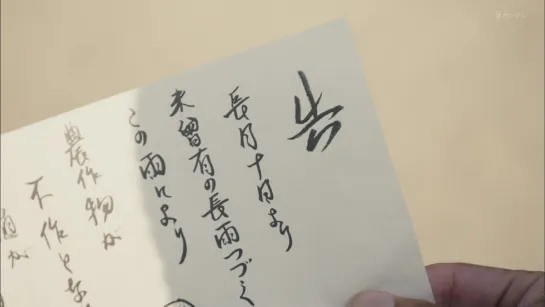 告
長月十日より
未曽有の長雨つづく
この雨により
農作物が
不作とな